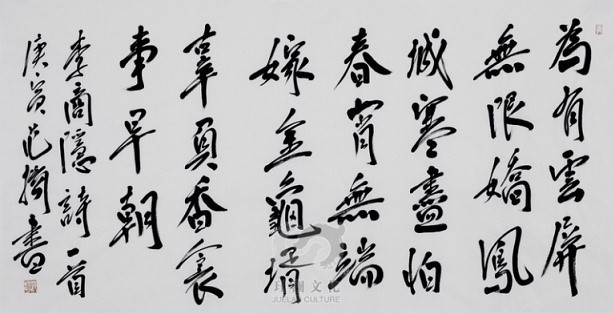 為有雲屏
無限嬌鳳
城寒盡怕
春宵無端
嫁金龜壻
辜負香衾
事早朝
李商隱詩一首
庚寅范揚書
JUELAN CULTURE